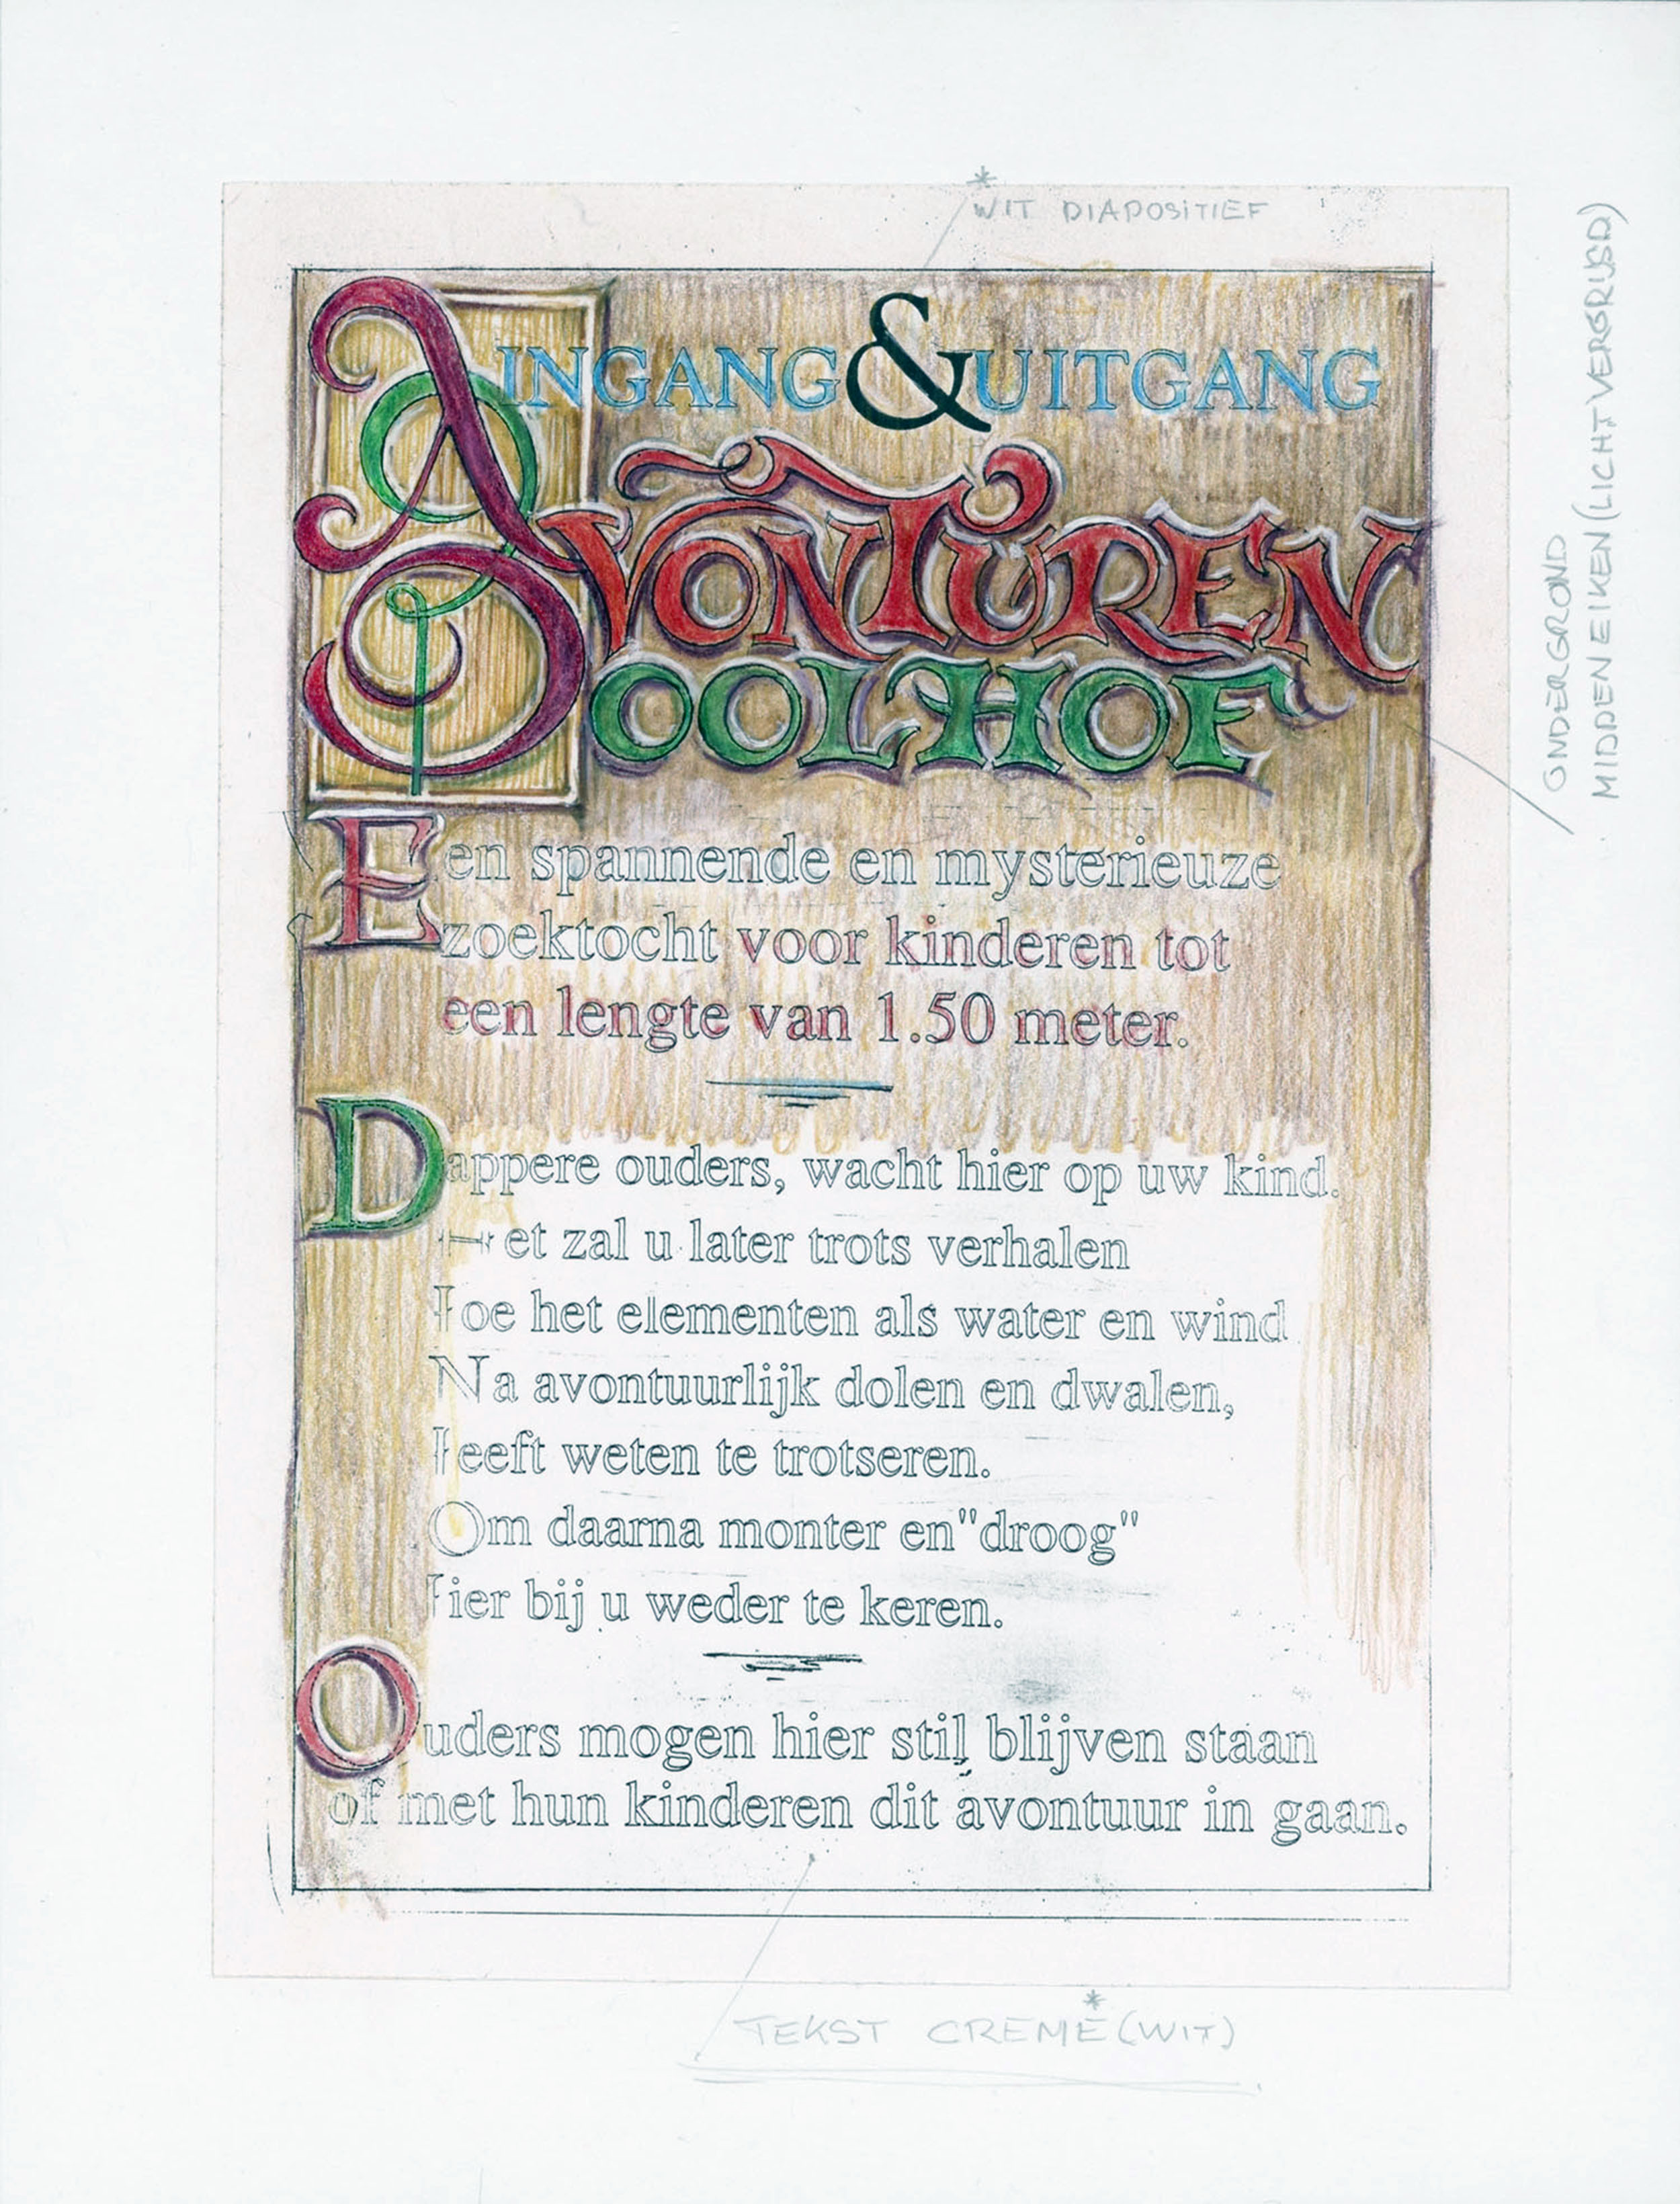 * WIT DIAPOSITIEF
INGANG & UITGANG
AVONTUREN
DOOLHOF
Een spannende en mysterieuze
zoektocht voor kinderen tot
een lengte van 1.50 meter.
Dappere ouders, wacht hier op uw kind.
Het zal u later trots verhalen
Hoe het elementen als water en wind
Na avontuurlijk dolen en dwalen,
Heeft weten te trotseren.
Om daarna monter en "droog"
Hier bij u weder te keren.
Ouders mogen hier stil blijven staan
of met hun kinderen dit avontuur in gaan.
TEKST CREME* (WIT)
ONDERGROND
MIDDEN EIKEN (LICHT VERGRIJSD)